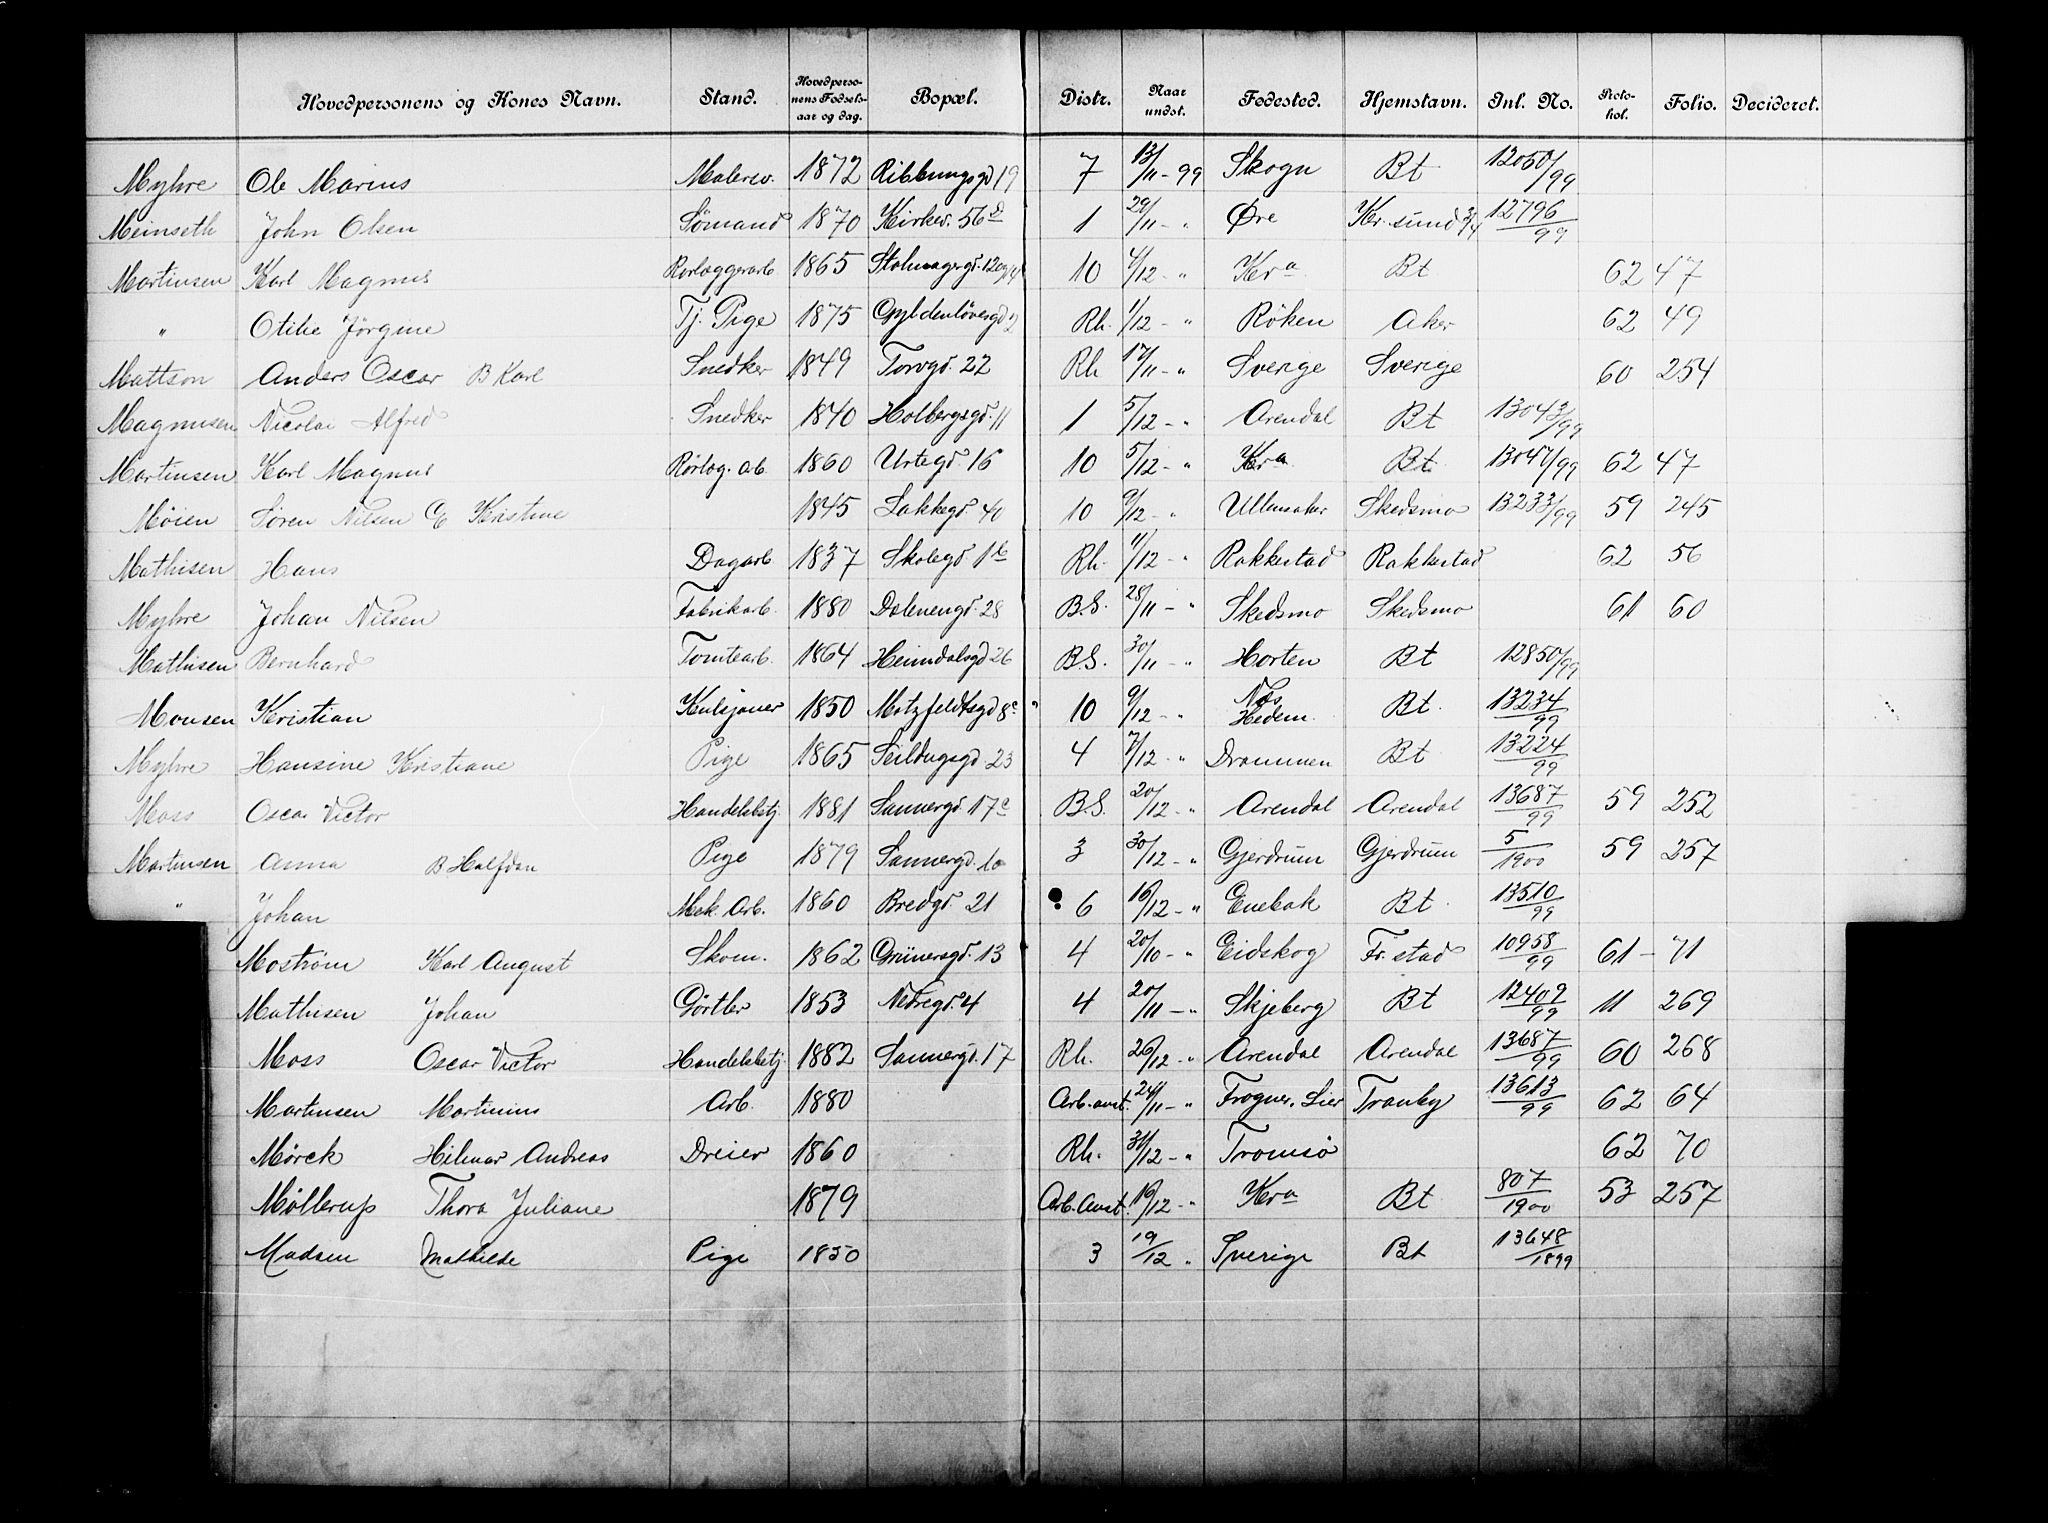 Hovedpersonens og Kones Navn. Stand. Hovedpersonens Fødselsaar og dag. Bopæl. Distr. Naar undst. Fødested. Hjemstavn. Inl. No. Protokol. Folio. Decideret.
Myhre Ole Marius Malersv. 1872 Ribbungsgd 19 7 13/11 - 99 Skogn Bt 12050/99
Meinseth John Olsen Sømand 1870 Kirkev. 56 d 1 29/11 - " Øre Kr. sund 3/4 12796/99
Martinsen Karl Magnus Rørlæggerarb 1865 Stolmagergd. 10 4/12 - " Kra Bt 62 47
" Otilie Jörgine Tj. Pige 1875 Gyldenløvesgd 2 Rh. 1/12 - " Röken Aker 62 49
Mattson Anders Oscar B Karl Snedker 1849 Torvgd. 22 Rh 17/11 - " Sverige Sverige 60 254
Magnusen Nicolai Alfred Snedker 1840 Holbergsgd. 11 1 5/12 - " Arendal Bt 13043/99
Martinsen Karl Magnus Rörlæg. ab. 1860 Urtegd. 16 10 5/12 - " Kra Bt 13047/99 62 47
Möien Sören Nilsen E Kristine 1845 Lakkegd 40 10 9/12 - " Ullensaker Skedsmo 13233/99 59 245
Mathisen Hans Dagarb 1837 Skolegd 1 b Rh. 11/12 - " Rakkestad Rakkestad 62 56
Myhre Johan Nilsen Fabrikarb. 1880 Dælenengd. 28 B.S. 28/11 - " Skedsmo Skedsmo 61 60
Mathisen Bernhard Tomtearb. 1864 Heimdalsgd 26 B.S. 30/11 - " Horten Bt 12850/99
Monsen Kristian Kulsjouer 1850 Motzfeldtsgd 8 c " 10 9/12 - " Næs Hedem. Bt. 13234/99
Myhre Hansine Kristiane Pige 1865 Seildugsgd 23 4 7/12 - " Drammen Bt 13224/99
Moss Oscar Victor Handelsbetj. 1881 Sannergd. 17 c B.S. 20/12 - " Arendal Arendal 13687/99 59 252
Martinsen Anna B Halfdan Pige 1879 Sannergd. 10 3 30/12 - " Gjerdrum Gjerdrum 5/1900 59 257
" Johan Mek. Arb. 1860 Bredgd. 21 6 16/12 - " Enebak Bt 13510/99
Moström Karl August Skom. 1862 Grünersgd. 13 4 20/10 - " Eidskog Fr. stad 10958/99 61 - 71
Mathisen Johan Görtler 1853 Nedregd. 4 4 20/11 - " Skjeberg Bt 12409/99 11 269
Moss Oscar Victor Handelsbetj. 1882 Sannergd. 17 Rh. 26/12 - " Arendal Arendal 13687/99 60 268
Martinsen Martinius Arb. 1880 Arb. anst. 24/11 - " Frogner. Lier Tranby 13613/99 62 64
Mörck Hilmar Andreas Dreier 1860 Rh. 31/12 - " Tromsö 62 70
Möllerup Thora Juliane 1879 Arb. Anst. 16/12 - " Kra Bt 807/1900 53 257
Madsen Mathilde Pige 1850 3 19/12 " Sverige Bt 13648/1899